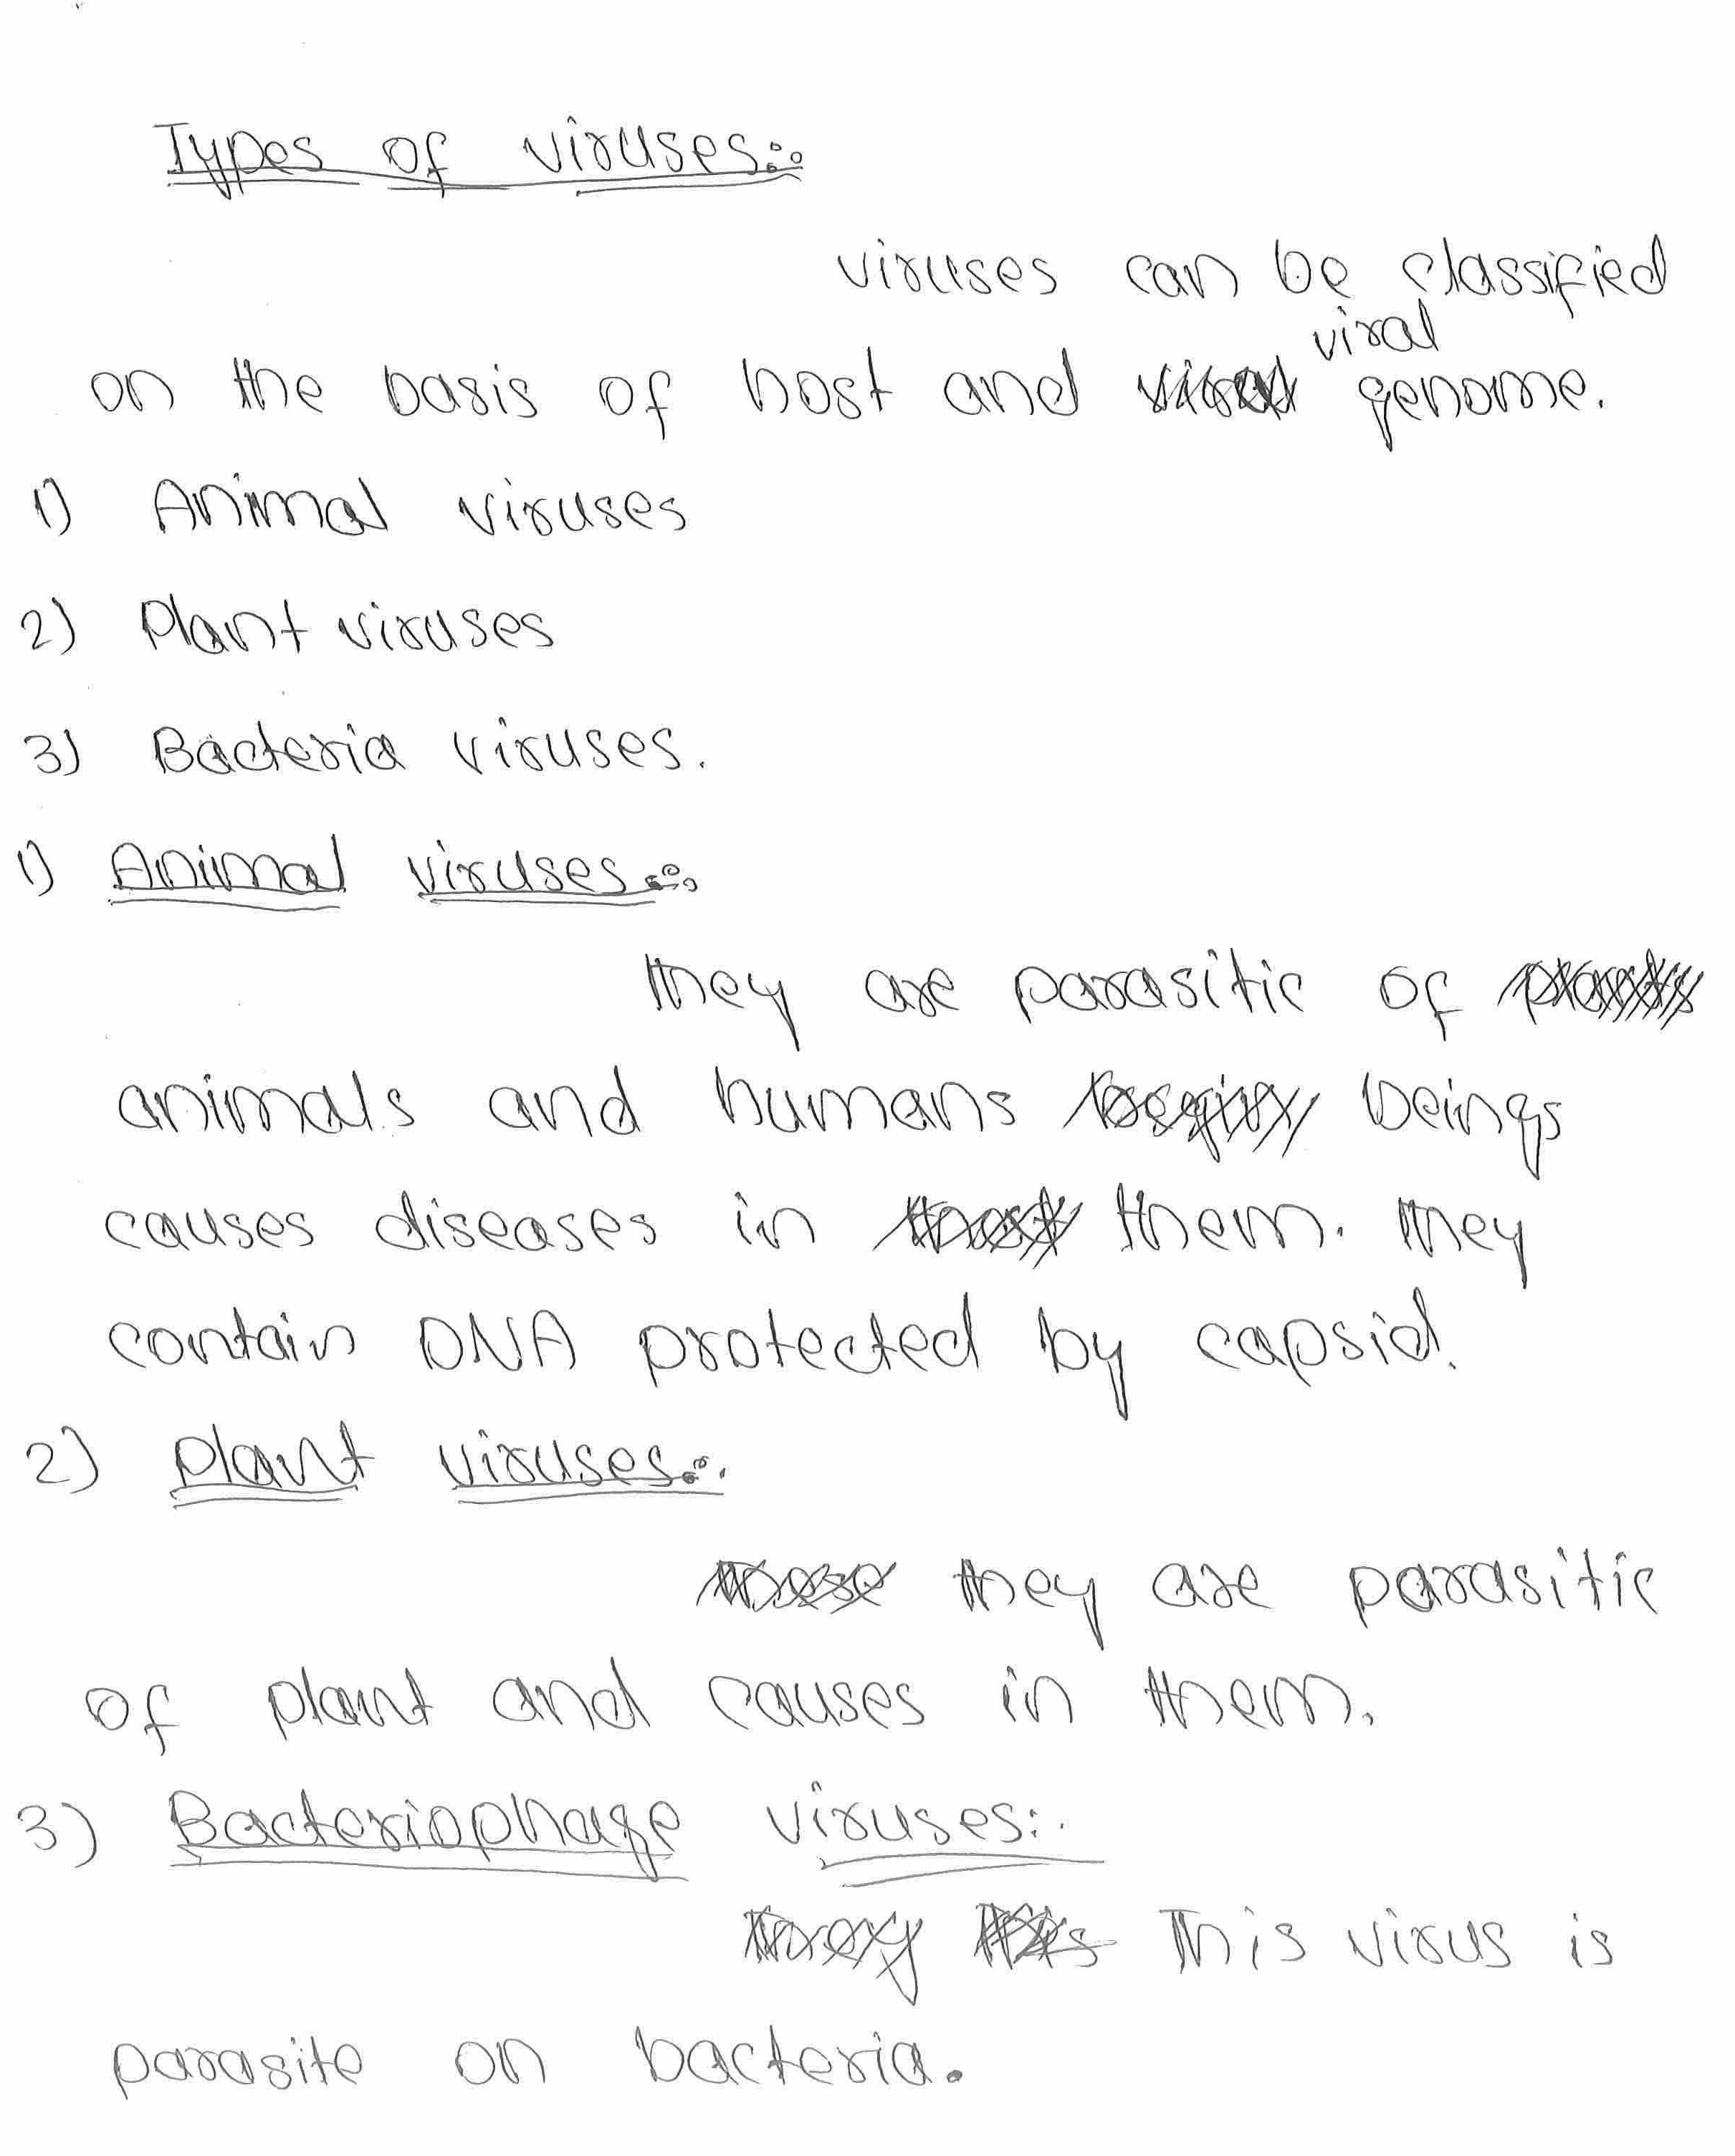 Types of viruses:-
viruses can be classified
on the basis of host and viral genome.
1) Animal viruses
2) Plant viruses
3) Bacteria viruses.
1) Animal viruses:-
they are parasitic of
animals and humans beings
causes diseases in them. they
contain DNA protected by capsid.
2) plant viruses:-
they are parasitic
of plant and causes in them.
3) Bacteriophage viruses:-
This virus is
parasite on bacteria.